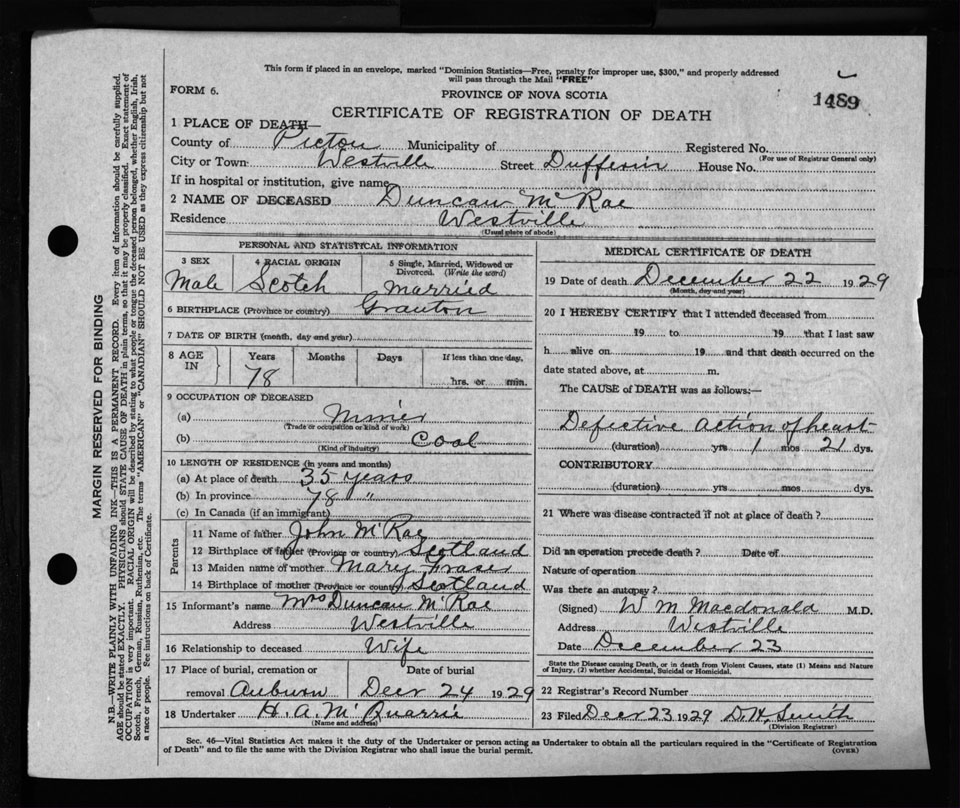 This form if placed in an envelope, marked "Dominion Statistics—Free, penalty for improper use, $300," and properly addressed
will pass through the Mail "FREE"
FORM 6.
PROVINCE OF NOVA SCOTIA
1489
CERTIFICATE OF REGISTRATION OF DEATH
1 PLACE OF DEATH—
County of Pictou Municipality of Registered No.
(For use of Registrar General only)
City or Town Westville Street Dufferin House No.
If in hospital or institution, give name
2 NAME OF DECEASED Duncan McRae
Residence Westville
(Usual place of abode)
PERSONAL AND STATISTICAL INFORMATION
3 SEX 4 RACIAL ORIGIN 5 Single, Married, Widowed or
Divorced. (Write the word)
Male Scotch Married
6 BIRTHPLACE (Province or country) Granton
7 DATE OF BIRTH (month, day and year)
8 AGE IN Years Months Days If less than one day,
78 hrs. or min.
9 OCCUPATION OF DECEASED
(a) Miner
(Trade or occupation or kind of work)
(b) Coal
(Kind of industry)
10 LENGTH OF RESIDENCE (in years and months)
(a) At place of death 35 years
(b) In province 78 "
(c) In Canada (if an immigrant)
Parents
11 Name of father John McRae
12 Birthplace of father (Province or country) Scotland
13 Maiden name of mother Mary Fraser
14 Birthplace of mother (Province or country) Scotland
15 Informant's name Mrs Duncan McRae
Address Westville
16 Relationship to deceased Wife
17 Place of burial, cremation or Date of burial
removal Auburn Decr 24 1929
18 Undertaker H. A. McQuarrie
(Name and address)
MEDICAL CERTIFICATE OF DEATH
19 Date of death December 22 1929
(Month, day and year)
20 I HEREBY CERTIFY that I attended deceased from
19 to 19 that I last saw
h alive on 19 and that death occurred on the
date stated above, at m.
The CAUSE of DEATH was as follows:—
Defective action of heart
(duration) yrs 1 mos 21 dys.
CONTRIBUTORY
(duration) yrs mos dys.
21 Where was disease contracted if not at place of death?
Did an operation precede death? Date of
Nature of operation
Was there an autopsy?
(Signed) W M Macdonald M.D.
Address Westville
Date December 23
State the Disease causing Death, or in death from Violent Causes, state (1) Means and Nature
of Injury, (2) whether Accidental, Suicidal or Homicidal.
22 Registrar's Record Number
23 Filed Decr 23 1929 D. H. Smith
(Division Registrar)
Sec. 46—Vital Statistics Act makes it the duty of the Undertaker or person acting as Undertaker to obtain all the particulars required in the "Certificate of Registration
of Death" and to file the same with the Division Registrar who shall issue the burial permit. (OVER)
MARGIN RESERVED FOR BINDING
N.B.—WRITE PLAINLY WITH UNFADING INK—THIS IS A PERMANENT RECORD. Every item of information should be carefully supplied.
AGE should be stated EXACTLY. PHYSICIANS should STATE CAUSE OF DEATH in plain terms, so that it may be properly classified. Exact statement of
OCCUPATION is very important. RACIAL ORIGIN will be described by stating to what people or tongue the deceased person belonged, whether English, Irish,
Scotch, French, German, Russian, Ruthenian, etc. The terms "AMERICAN" or "CANADIAN" SHOULD NOT BE USED as they express citizenship but not
a race or people. See instructions on back of Certificate.